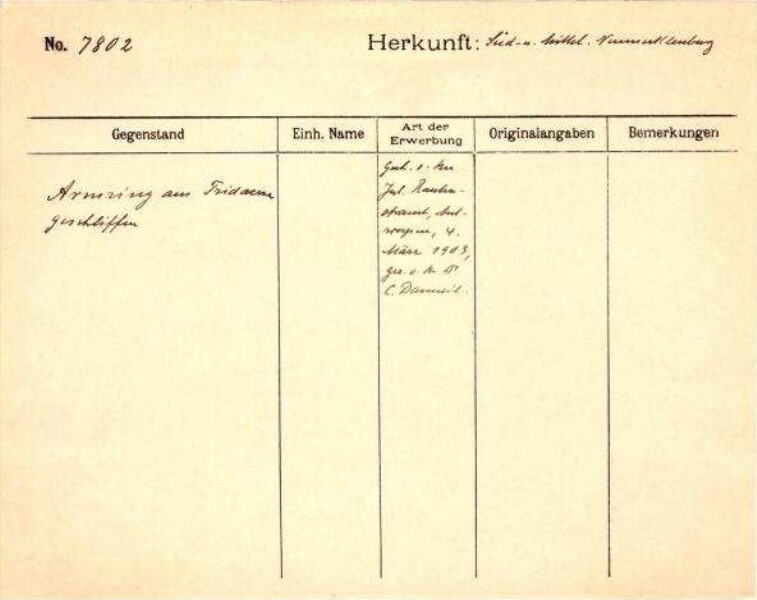 No. 7802
Herkunft: Süd- u. Mittel. Neumecklenburg
Gegenstand
Einh. Name
Art der
Erwerbung
Originalangaben
Bemerkungen
Armring aus Tridacna
geschliffen
Gesch. v. Hrn
Jul. Rauten-
strauch, Ant-
werpen, 4.
März 1903,
ges. v. Hr Dr
C. Danneil.